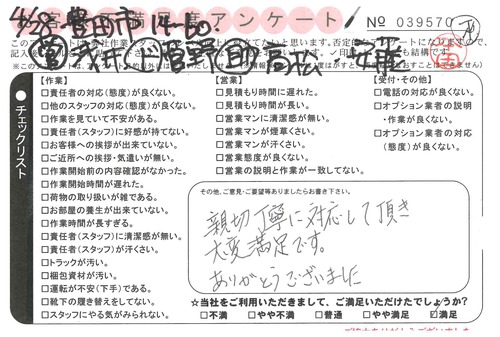 アンケート
№ 039570
チェックリスト
【作業】
□責任者の対応(態度)が良くない。
□他のスタッフの対応(態度)が良くない。
□作業を見ていて不安がある。
□責任者(スタッフ)に好感が持てない。
□お客様への挨拶が出来ていない。
□ご近所への挨拶・気遣いが無い。
□作業開始前の内容確認がなかった。
□作業開始時間が遅れた。
□荷物の取り扱いが雑である。
□お部屋の養生が出来ていない。
□作業時間が長すぎる。
□責任者(スタッフ)に清潔感が無い。
□責任者(スタッフ)が汗くさい。
□トラックが汚い。
□梱包資材が汚い。
□運転が不安(下手)である。
□靴下の履き替えをしてない。
□スタッフにやる気がみられない。
【営業】
□見積もり時間に遅れた。
□見積もり時間が長い。
□営業マンに清潔感が無い。
□営業マンが煙草くさい。
□営業マンが汗くさい。
□営業態度が良くない。
□営業の説明と作業が一致してない。
【受付・その他】
□電話の対応が良くない。
□オプション業者の説明
・作業が良くない。
□オプション業者の対応
(態度)が良くない。
その他、ご意見・ご要望等ありましたらお書き下さい。
親切丁寧に対応して頂き
大変満足です。
ありがとうございました
☆当社をご利用いただきまして、ご満足いただけたでしょうか?
□不満 □やや不満 □普通 □やや満足 ☑満足